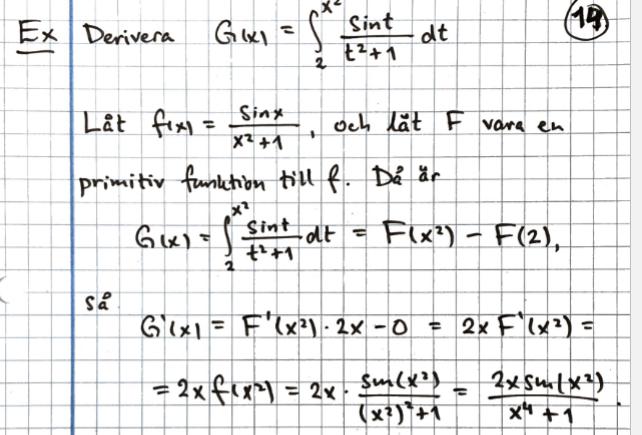 Ex Derivera G(x) = ∫₂^{x²} sin t / (t²+1) dt (19)
Låt f(x) = sin x / (x²+1), och låt F vara en
primitiv funktion till f. Då är
G(x) = ∫₂^{x²} sin t / (t²+1) dt = F(x²) - F(2),
så
G'(x) = F'(x²) · 2x - 0 = 2x F'(x²) =
= 2x f(x²) = 2x · sin(x²) / ((x²)²+1) = 2x sin(x²) / (x⁴+1).